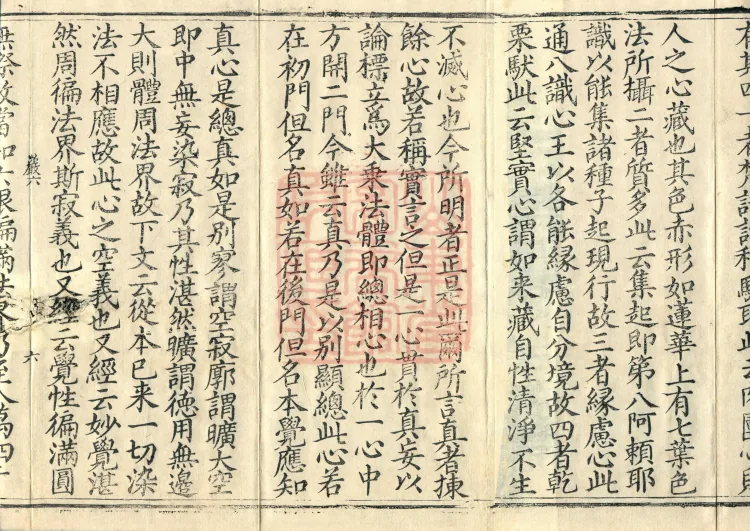 人之心藏也其色赤形如蓮華上有七葉色
法所攝二者質多此云集起即第八阿頼耶
識以能集諸種子起現行故三者縁慮心此
通八識心王以各能縁慮自分境故四者乾
栗䭾此云堅實心謂如来藏自性清淨不生
不滅心也今所明者正是此爾所言真者揀
餘心故若稱實言之但是一心貫於真妄以
論標立爲大乗法體即總相心也於一心中
方開二門今雖云真乃是以別顯總此心若
在初門但名真如若在後門但名本覺應知
真心是總真如是別寥謂空寂廓謂曠大空
即中無妄染寂乃其性湛然曠謂徳用無邉
大則體周法界故下文云從本已来一切染
法不相應故此心之空義也又經云妙覺湛
然周徧法界斯寂義也又經云覺性徧滿圓
六